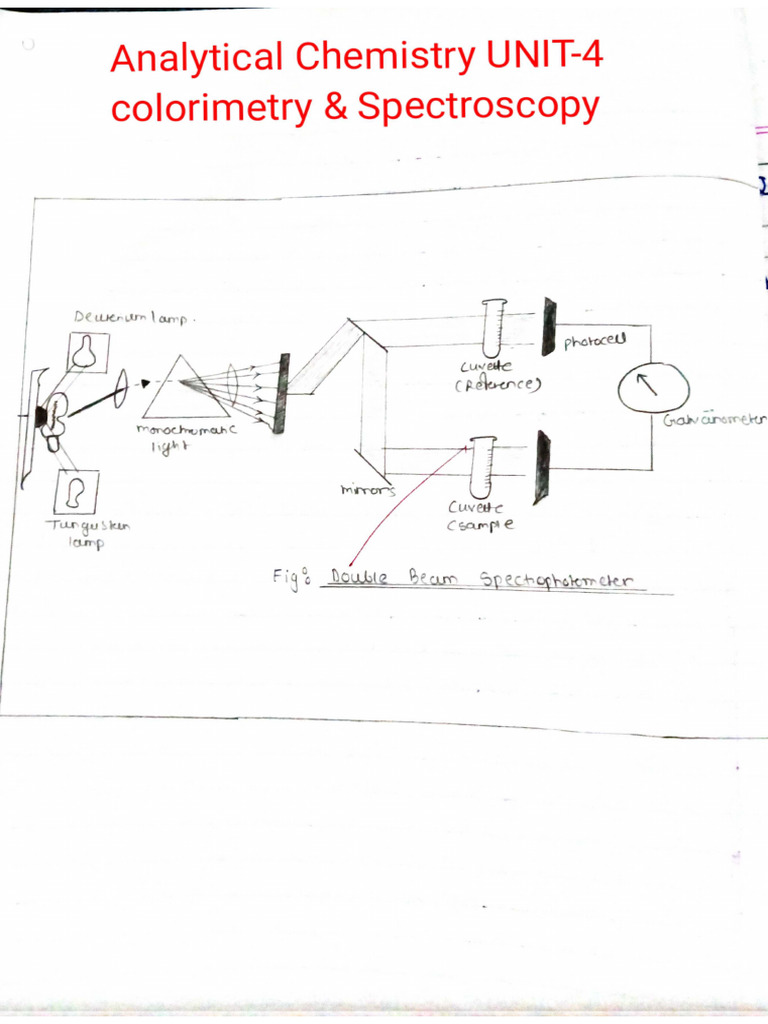 Analytical Chemistry UNIT-4
colorimetry & Spectroscopy
Deuterium lamp.
photocell
cuvette
(Reference)
Galvanometer
monochromatic
light
mirrors
cuvette
(sample
Tungusten
lamp
Fig: Double Beam Spectophotometer